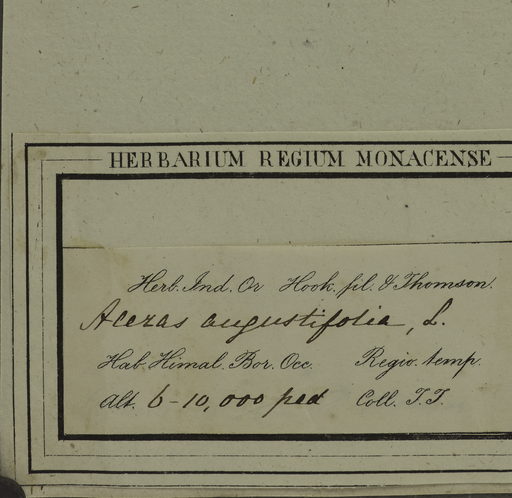 HERBARIUM REGIUM MONACENSE
Herb. Ind. Or Hook. fil. & Thomson.
Aceras angustifolia, L.
Hab. Himal. Bor. Occ. Regio. temp.
Alt. 6-10,000 ped Coll. T.T.